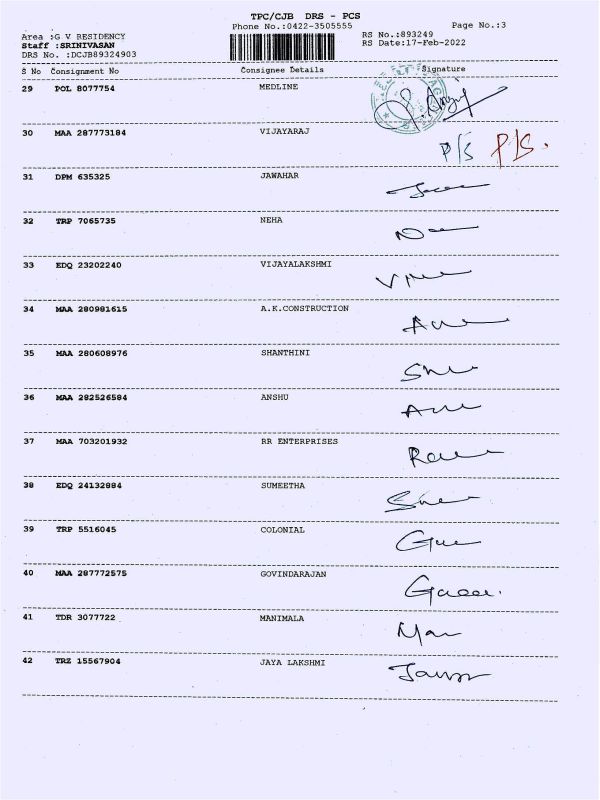 TPC/CJB DRS - PCS
Phone No.:0422-3505555
Page No.:3
Area :G V RESIDENCY
Staff :SRINIVASAN
DRS No. :DCJB89324903
RS No.:893249
RS Date:17-Feb-2022
S No Consignment No Consignee Details Signature
29 POL 8077754 MEDLINE
30 MAA 287773184 VIJAYARAJ P/S P/S.
31 DPM 635325 JAWAHAR
32 TRP 7065735 NEHA
33 EDQ 23202240 VIJAYALAKSHMI
34 MAA 280981615 A.K.CONSTRUCTION
35 MAA 280608976 SHANTHINI
36 MAA 282526584 ANSHU
37 MAA 703201932 RR ENTERPRISES
38 EDQ 24132884 SUMEETHA
39 TRP 5516045 COLONIAL
40 MAA 287772575 GOVINDARAJAN
41 TDR 3077722 MANIMALA
42 TRZ 15567904 JAYA LAKSHMI